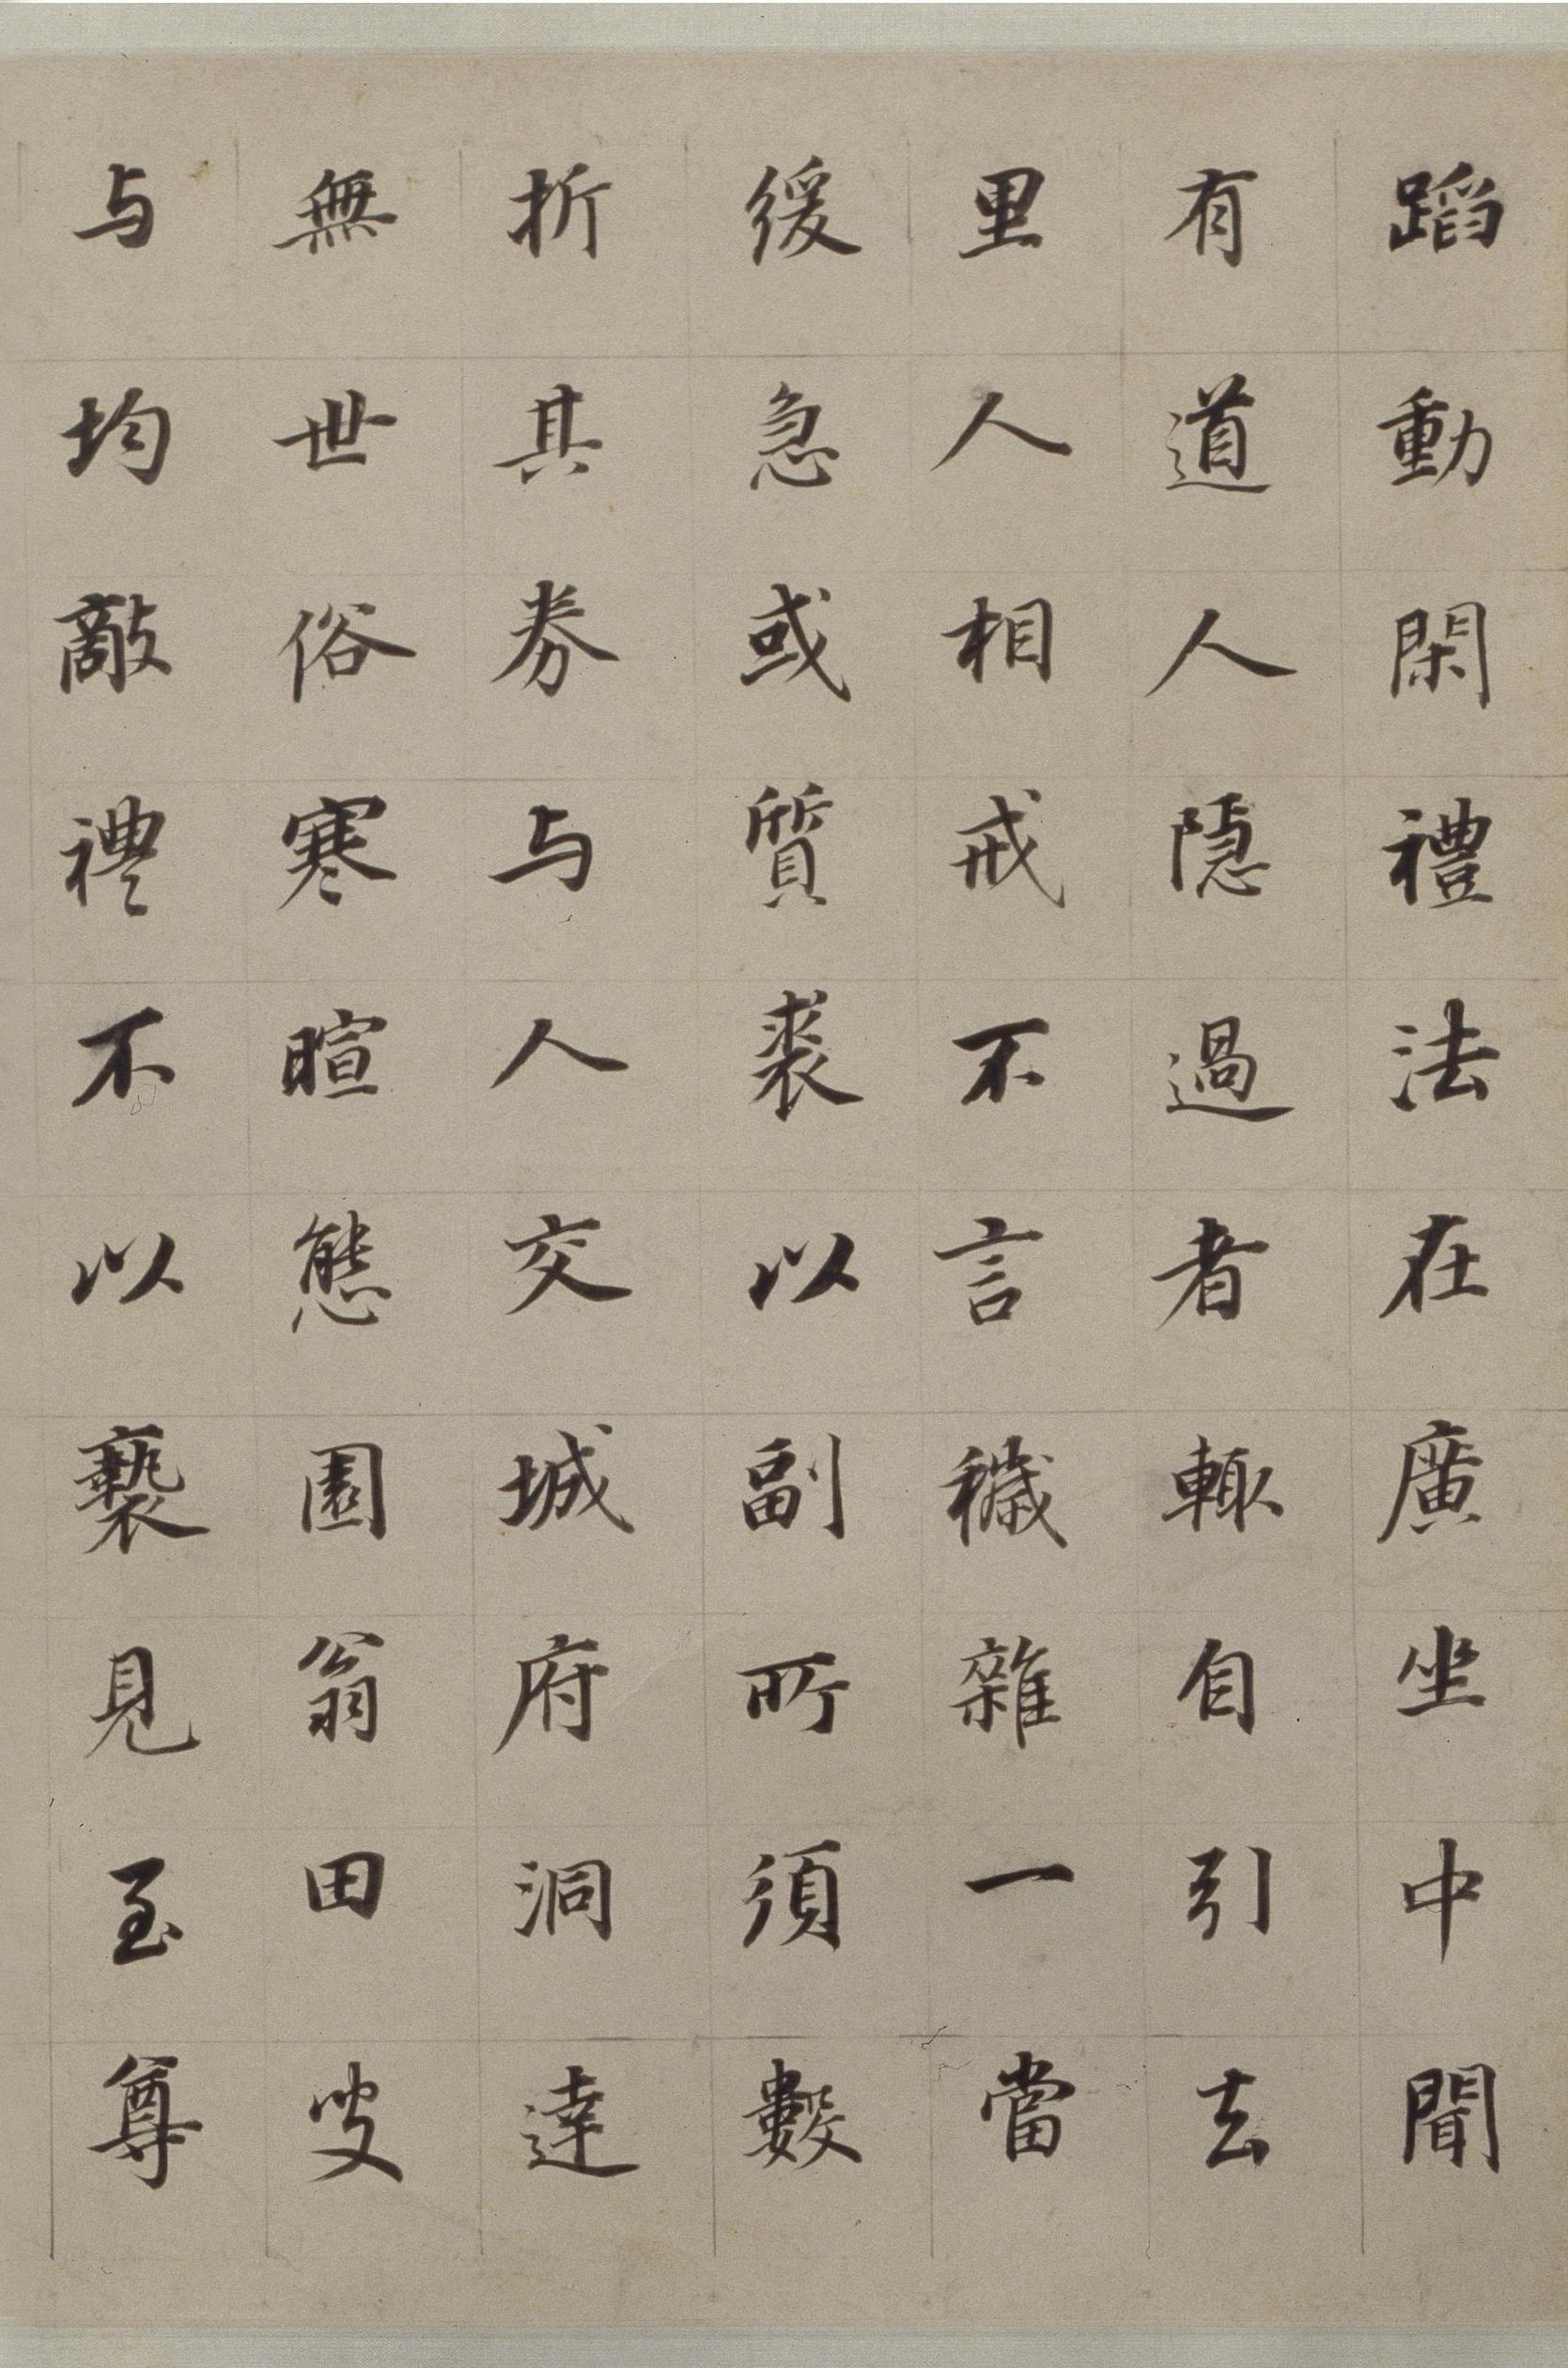 蹈動閑禮法在廣坐中聞
有道人隱過者輒自引去
里人相戒不言穢雜一當
緩急或質裘以副所須數
折其券与人交城府洞達
無世俗寒暄態園翁田叟
与均敵禮不以褻見至尊